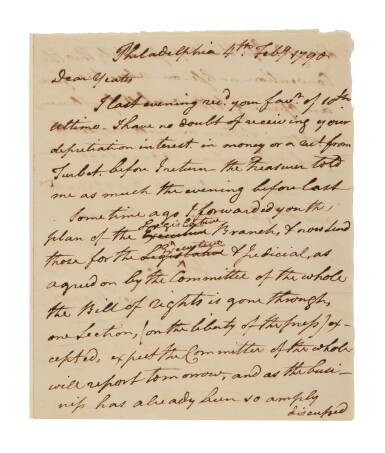 Philadelphia 4th Feby 1790
Dear Yeates
I last evening recd your favr. of 10th
ultimo. I have no doubt of receiving your
depretiation interest in money or a rect from
Turbet before I return the Treasurer told
me as much the evening before last
Some time ago I forwarded you the
Legislative
plan of the Executive Branch, & now send
Executive
those for the Legislative & Judicial, as
agreed on by the Committee of the whole
the Bill of rights is gone through,
one Section, (on the liberty of the press) ex-
cepted, expect the Committee of the whole
will report tomorrow, and as the busi-
ness has already been so amply
discussed